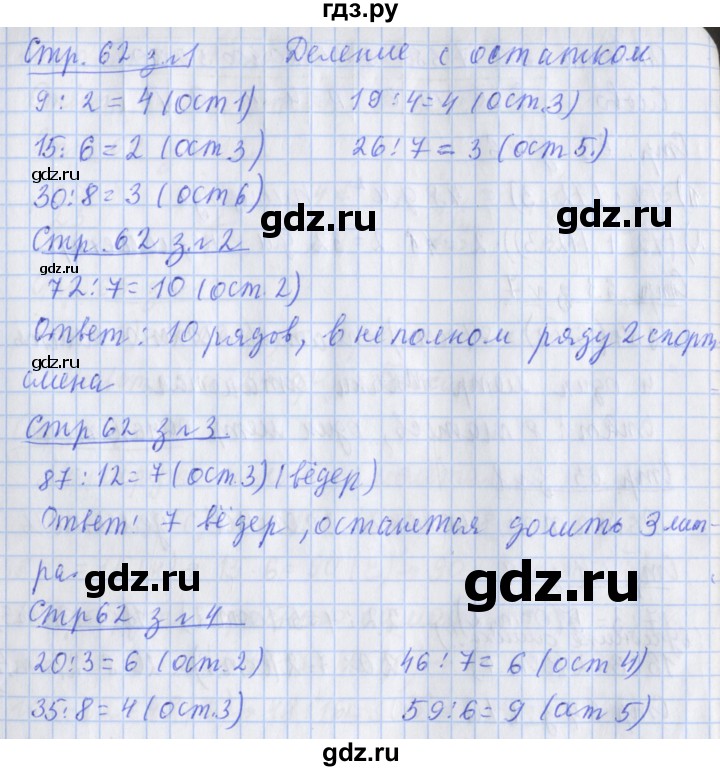 гдз.ру
Стр. 62 з.№1 Деление с остатком
9 : 2 = 4 (ост 1) 19 : 4 = 4 (ост.3)
15 : 6 = 2 (ост. 3) 26 : 7 = 3 (ост 5.)
gdz.ru
30 : 8 = 3 (ост 6)
gdz.ru gdz.ru
Стр. 62 з.№2
gdz.ru
72 : 7 = 10 (ост. 2)
Ответ: 10 рядов, в неполном ряду 2 спортс
gdz.ru
смена
Стр 62 з №3.
87 : 12 = 7 (ост. 3) (вёдер)
Ответ: 7 вёдер, останется долить 3 лит-
ра.
gdz.ru gdz.ru
Стр 62 з №4
20 : 3 = 6 (ост. 2) 46 : 7 = 6 (ост 4)
35 : 8 = 4 (ост. 3) 59 : 6 = 9 (ост 5)
gdz.ru gdz.ru
gdz.ru